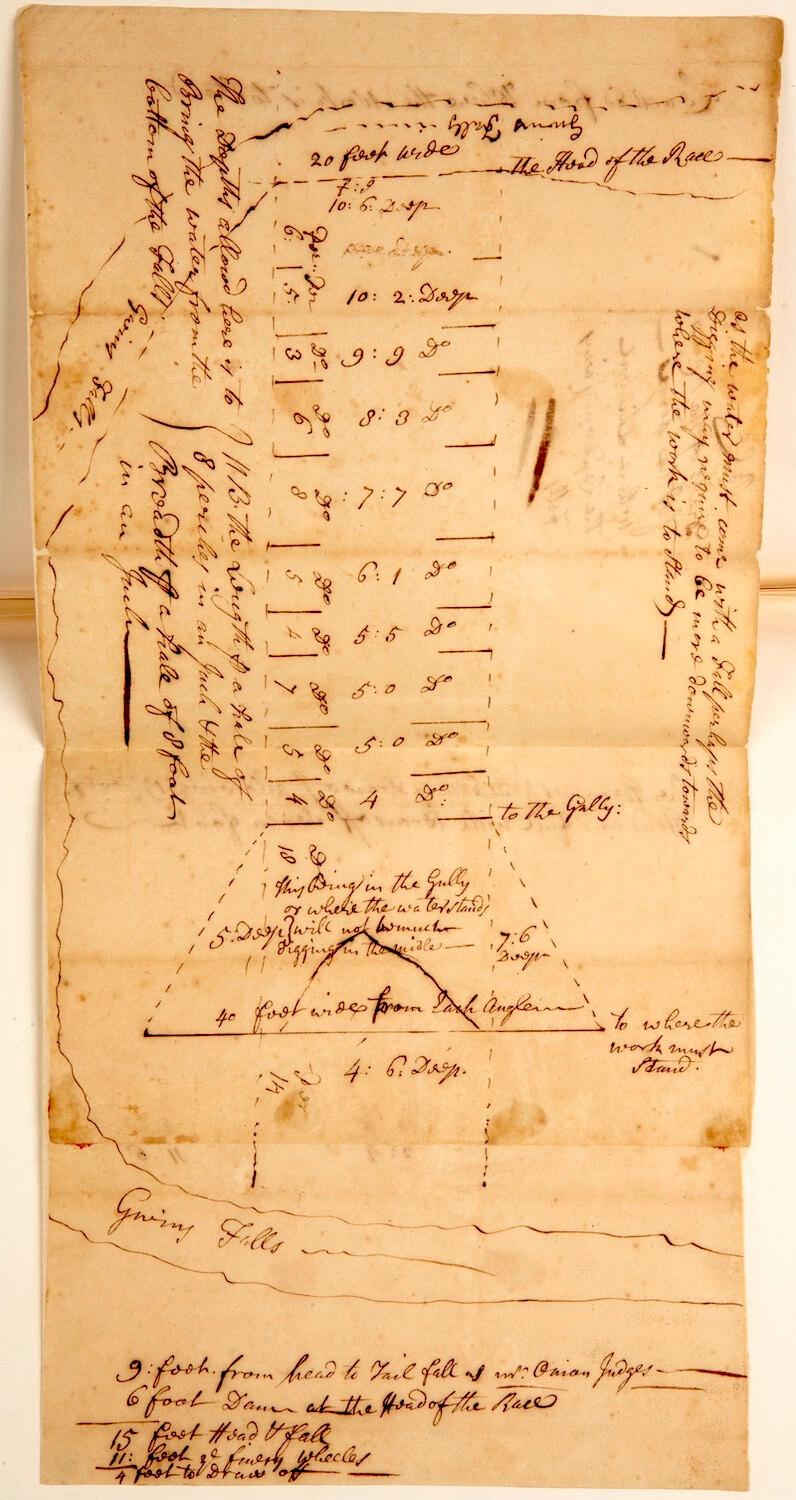 Gwins Falls
20 foot wide
the Head of the Race
7:9
10: 6: Deep
6: Per:
5: Per 10: 2: Deep
3 Do 9: 9 Do
6 Do 8: 3 Do
8 Do : 7: 7 Do
5 Do 6: 1 Do
4 Do 5: 5 Do
7 Do 5: 0 Do
5 Do 5: 0 Do
4 Do 4 Do:
to the Gully:
18 Do
this being in the Gully
or where the water stands
will not be much
digging in the midle
5: Deep
7: 6
Deep
40 foot wide from Each Angle
to where the
work must
Stand.
4: 6: Deep.
14 Per
The Depths allowd here is to
Bring the water from the
bottom of the Falls
Gwins Falls
NB. the Length p a Scale of
8 perches in an Inch & the
Breadth p a Scale of 8 foot
in an Inch
as the water must come with a Fall perhaps the
Digging may require to be more downwards towards
where the work is to Stand
Gwins Falls
9: foot from head to Tail fall as mr. Onion Judges
6 foot Damm at the Head of the Race
15 foot Head & fall
11: foot ye finery wheeles
4 foot to Draw off